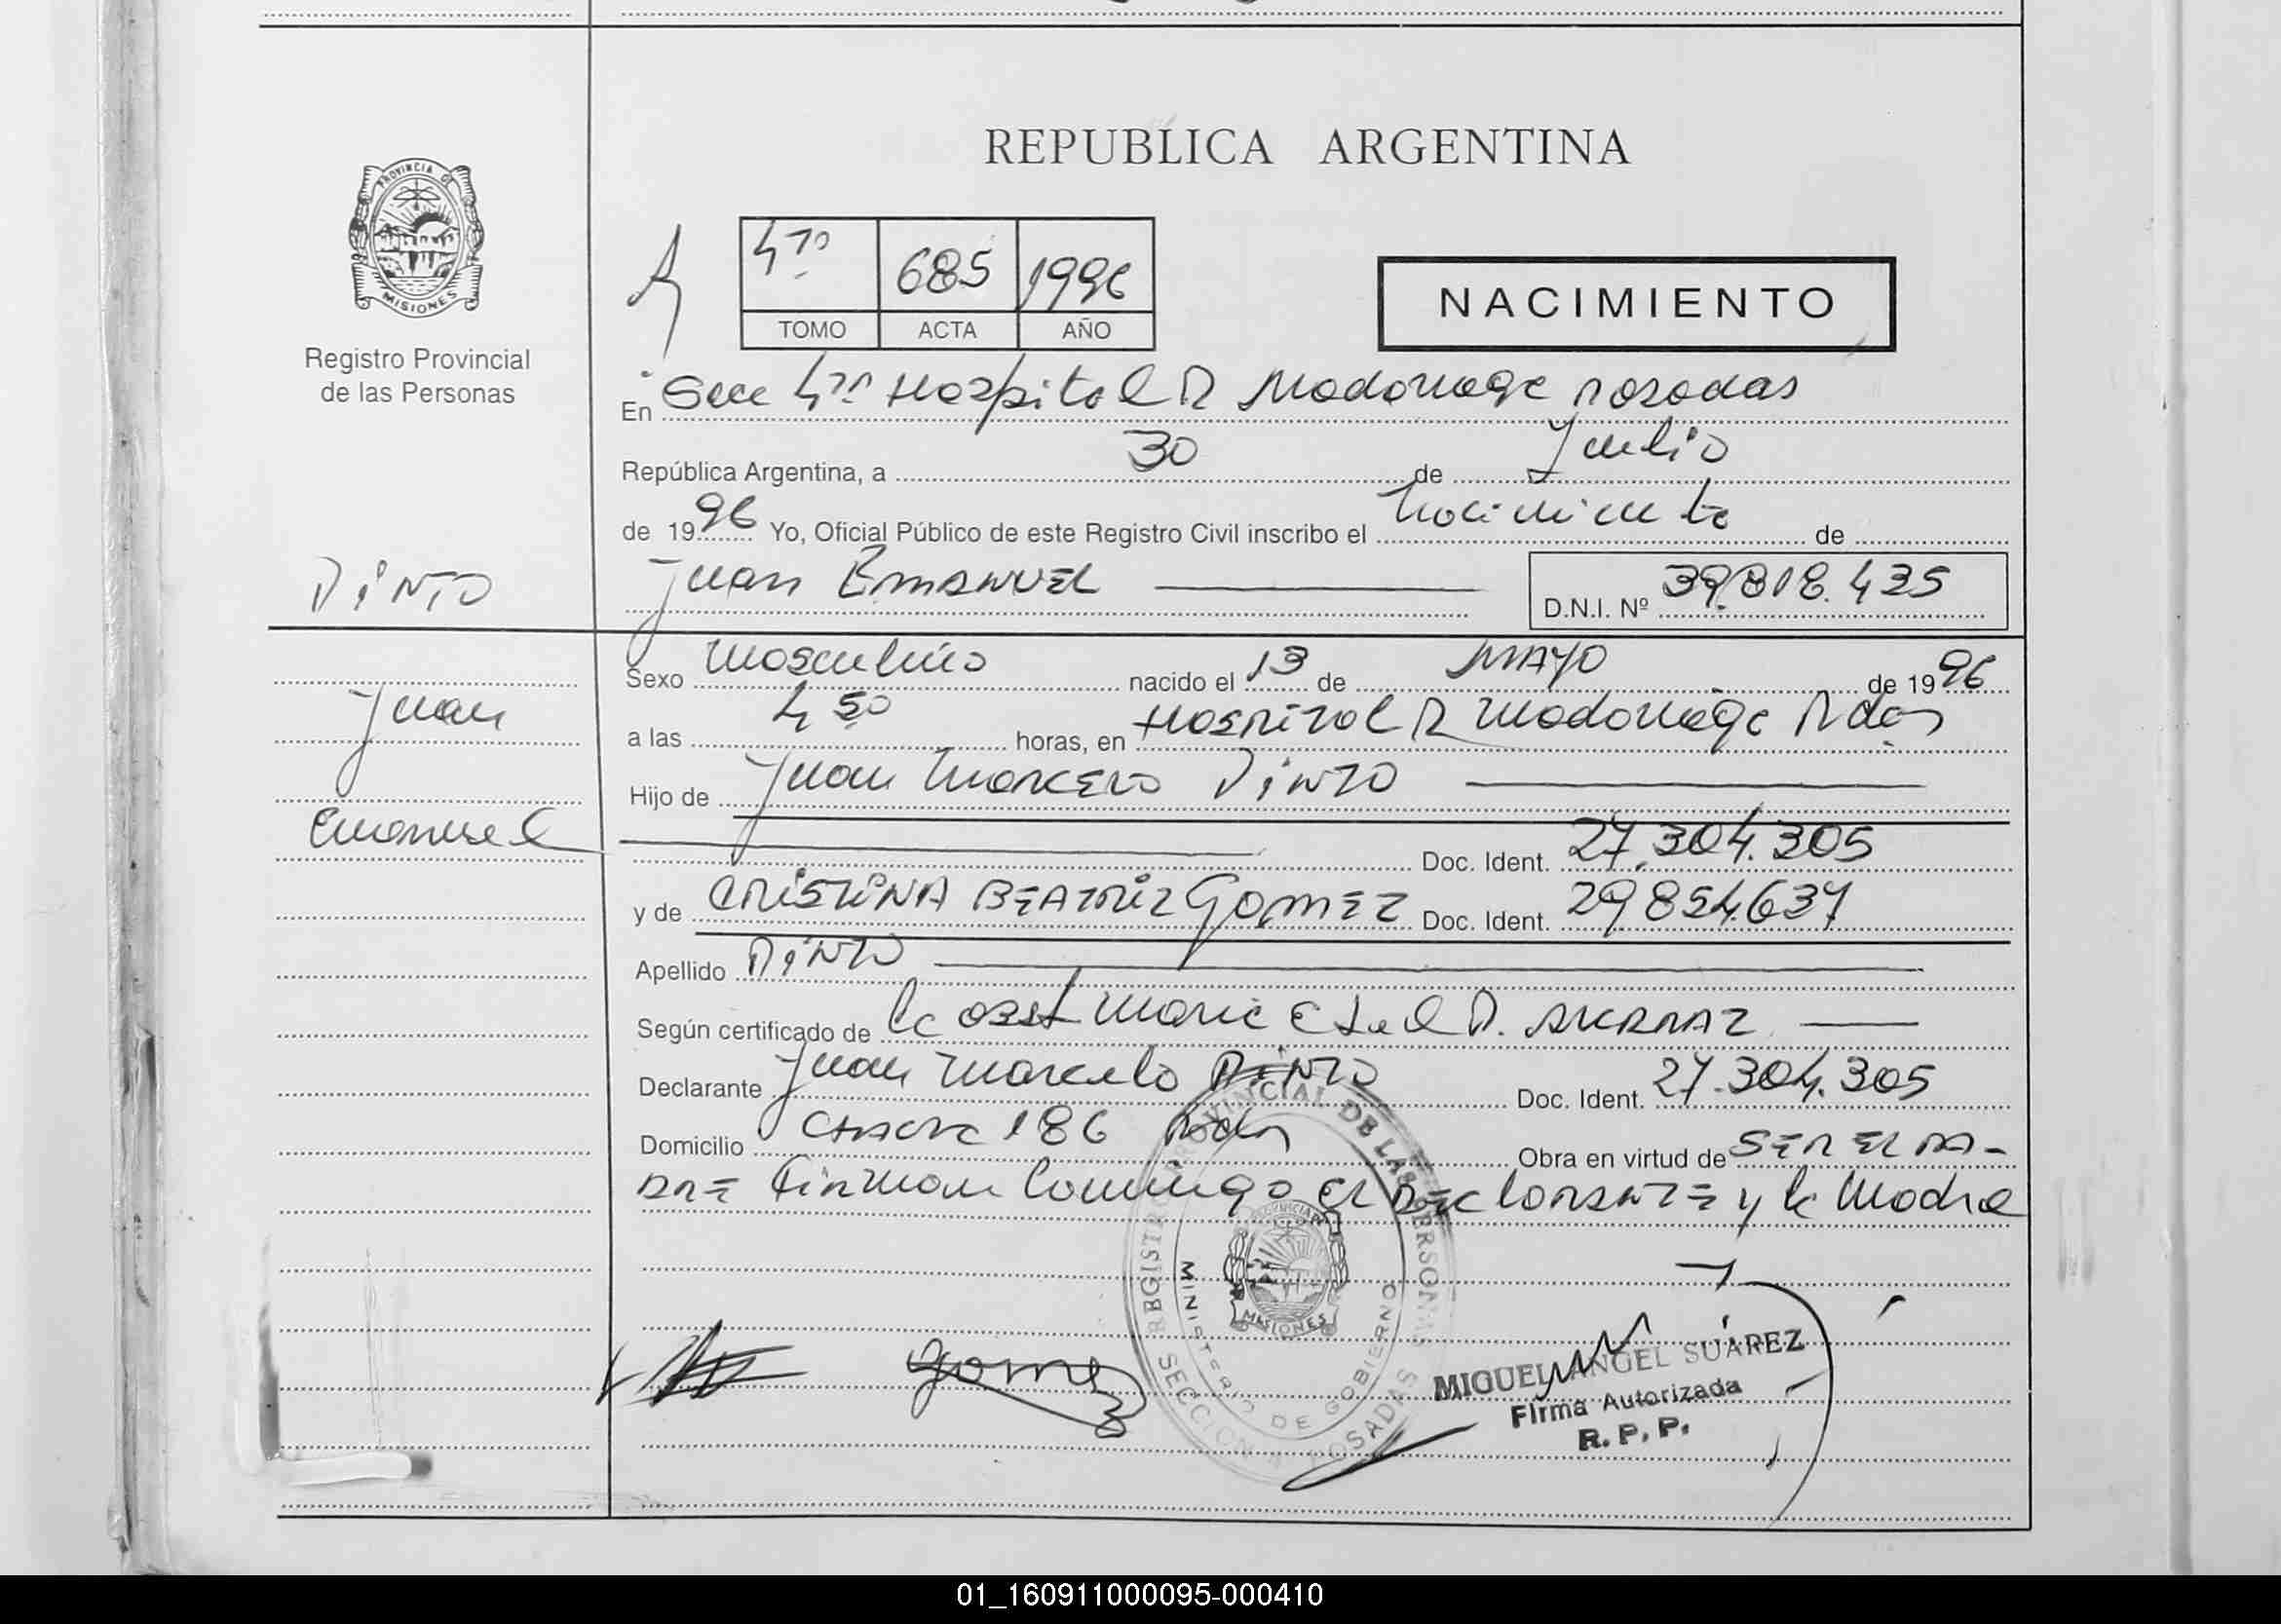 REPUBLICA ARGENTINA
PROVINCIA DE
MISIONES
Registro Provincial
de las Personas
4to 685 1996
TOMO ACTA AÑO
NACIMIENTO
En Secc 4ta Hospital R Madariaga Posadas
República Argentina, a 30 de Julio
de 1996 Yo, Oficial Público de este Registro Civil inscribo el Nacimiento de
Juan Emanuel
D.N.I. Nº 39.818.435
PINTO
Juan
Emanuel
Sexo Masculino nacido el 13 de MAYO de 1996
a las 4 50 horas, en Hospital R Madariaga Pdas
Hijo de Juan Marcelo Pinto
Doc. Ident. 27.304.305
y de CRISTINA BEATRIZ GOMEZ Doc. Ident. 29854637
Apellido PINTO
Según certificado de la obst Maria Etel R.
Declarante Juan Marcelo PINTO Doc. Ident. 27.304.305
Domicilio 186 Pdas Obra en virtud de SER EL PA-
DRE Firman Conmigo el DEClarante y la Madre
REGISTRO PROVINCIAL DE LAS PERSONAS
MINISTERIO DE GOBIERNO
MISIONES
SECCION 4 POSADAS
Gomez
MIGUEL ANGEL SUÁREZ
Firma Autorizada
R. P. P.
01_160911000095-000410